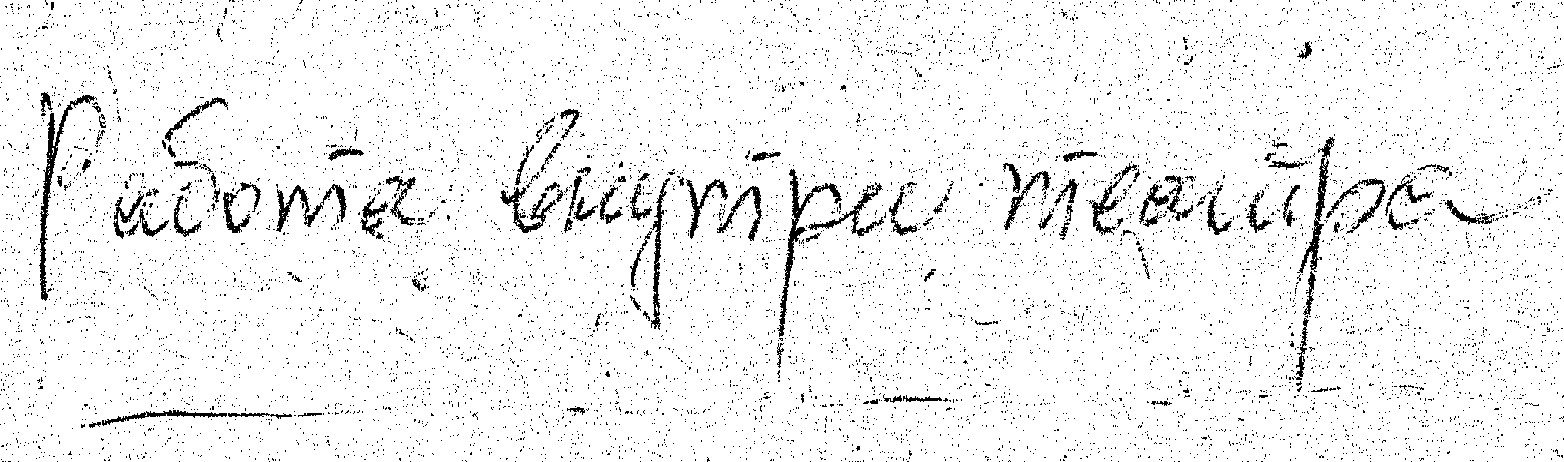 Работа внутри театра